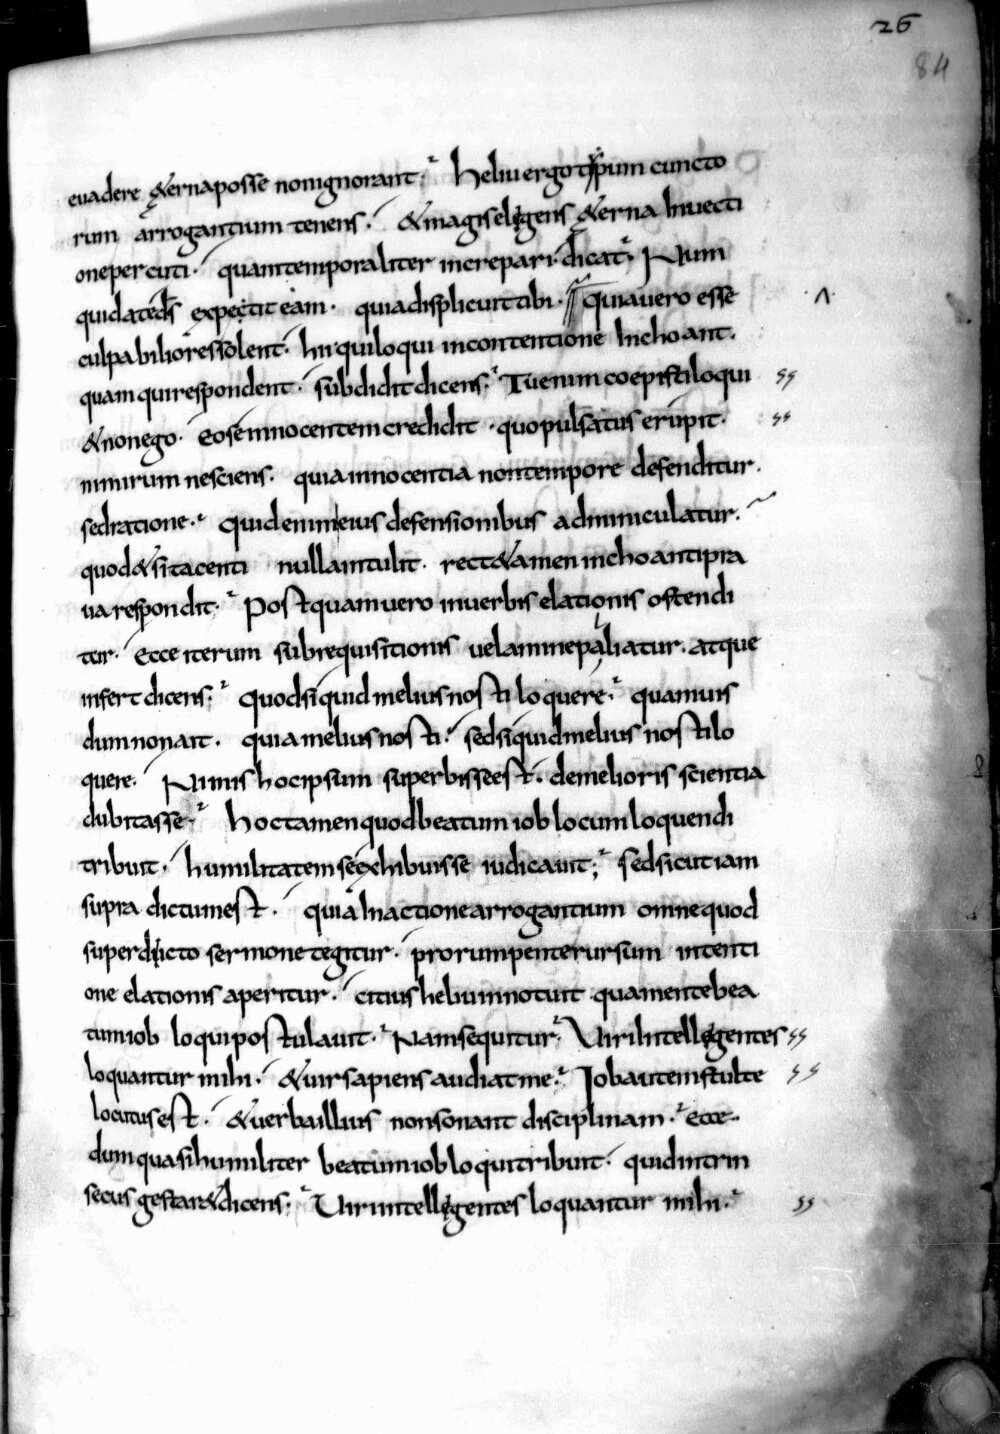 26
84
euadere &ernaposse nonignorant. heliu ergo typum cuncto
rum arrogantium tenens. & magis eligens &erna Inuecti
one percuti. quam temporaliter increpari. dicat. Num
quid a te ds expectit eam. quia displicuit tibi. Quia uero esse
culpabiliores solent. hii qui loqui in contentione Inchoant.
quam qui respondent. subdidit dicens. Tu enim coepisti loqui
& non ego. eo se innocentem credidit. quo pulsatus erupit.
nimirum nesciens. quia innocentia non tempore defenditur.
sed ratione. Quid enim eius defensionibus adminiculatur.
quod & si tacenti nulla intulit. rect& amen inchoanti pra
ua respondit. Postquam uero in uerbis elationis ostendi
tur. ecce iterum sub requisitionis uelamine palliatur. atque
infert dicens. quod si quid melius nosti loquere. quamuis
dum non ait. quia melius nosti. sed si quid melius nosti lo
quere. Nimis hoc ipsum superbisse est. de melioris scientia
dubitasse. hoc tamen quod beatum iob locum loquendi
tribuit. humilitatem se exhibuisse iudicauit; sed sicut iam
supra dictum est. quia In actione arrogantium omne quod
superducto sermone tegitur. prorumpente rursum intenti
one elationis aperitur. citius heliu innotuit qua mente bea
tum iob loqui postulauit. Nam sequitur. Uiri Intellegentes
loquantur mihi. & uir sapiens audiat me. Iob autem stulte
locutus est. & uerba illius non sonant disciplinam. ecce
dum quasi humiliter beatum iob loqui tribuit. quid intrin
secus gestar& dicens. Uiri intellegentes loquantur mihi.